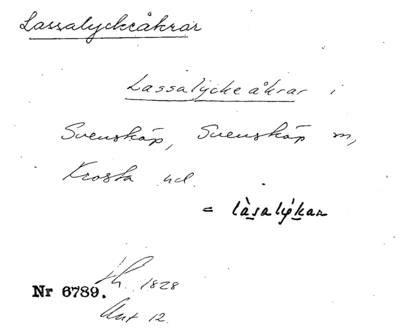 Lassalyckeåkrar
Lassalyckeåkrar i
Svensköp, Svensköp sn,
Frosta hd.
= làsalýkan
Nr 6789. 1828
Akt 12.